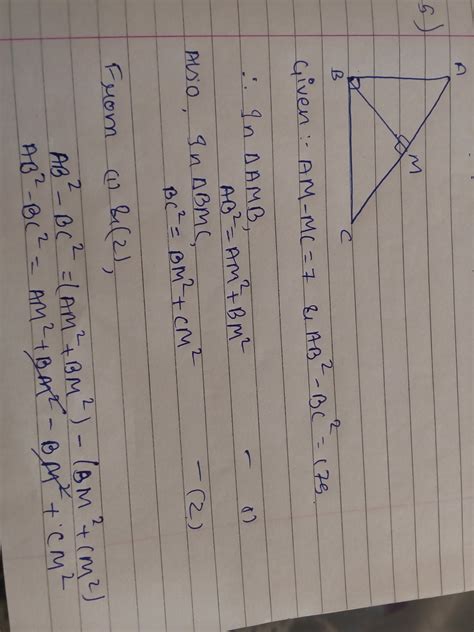 5)
A
B
M
C
Given :- AM-MC=7 & AB²-BC²=175
∴ In ΔAMB,
AB²=AM²+BM² - (1)
Also, In ΔBMC,
BC²= BM²+CM² - (2)
From (1) &(2),
AB²-BC²=(AM²+BM²)-(BM²+CM²)
AB²-BC²= AM²+BM²-BM²+CM²